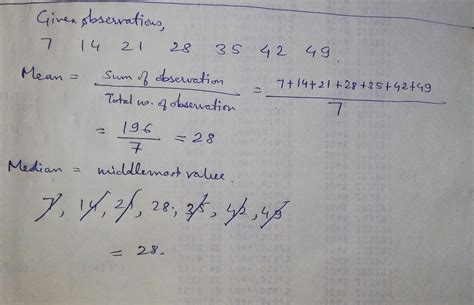 Given observations,
7 14 21 28 35 42 49
Mean = Sum of observation / Total no. of observation = 7+14+21+28+35+42+49 / 7
= 196 / 7 = 28
Median = middlemost value.
7, 14, 21, 28, 35, 42, 49
= 28.